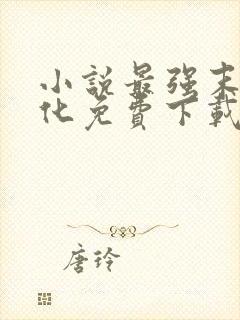 小説最強末
化免費下載
唐玲